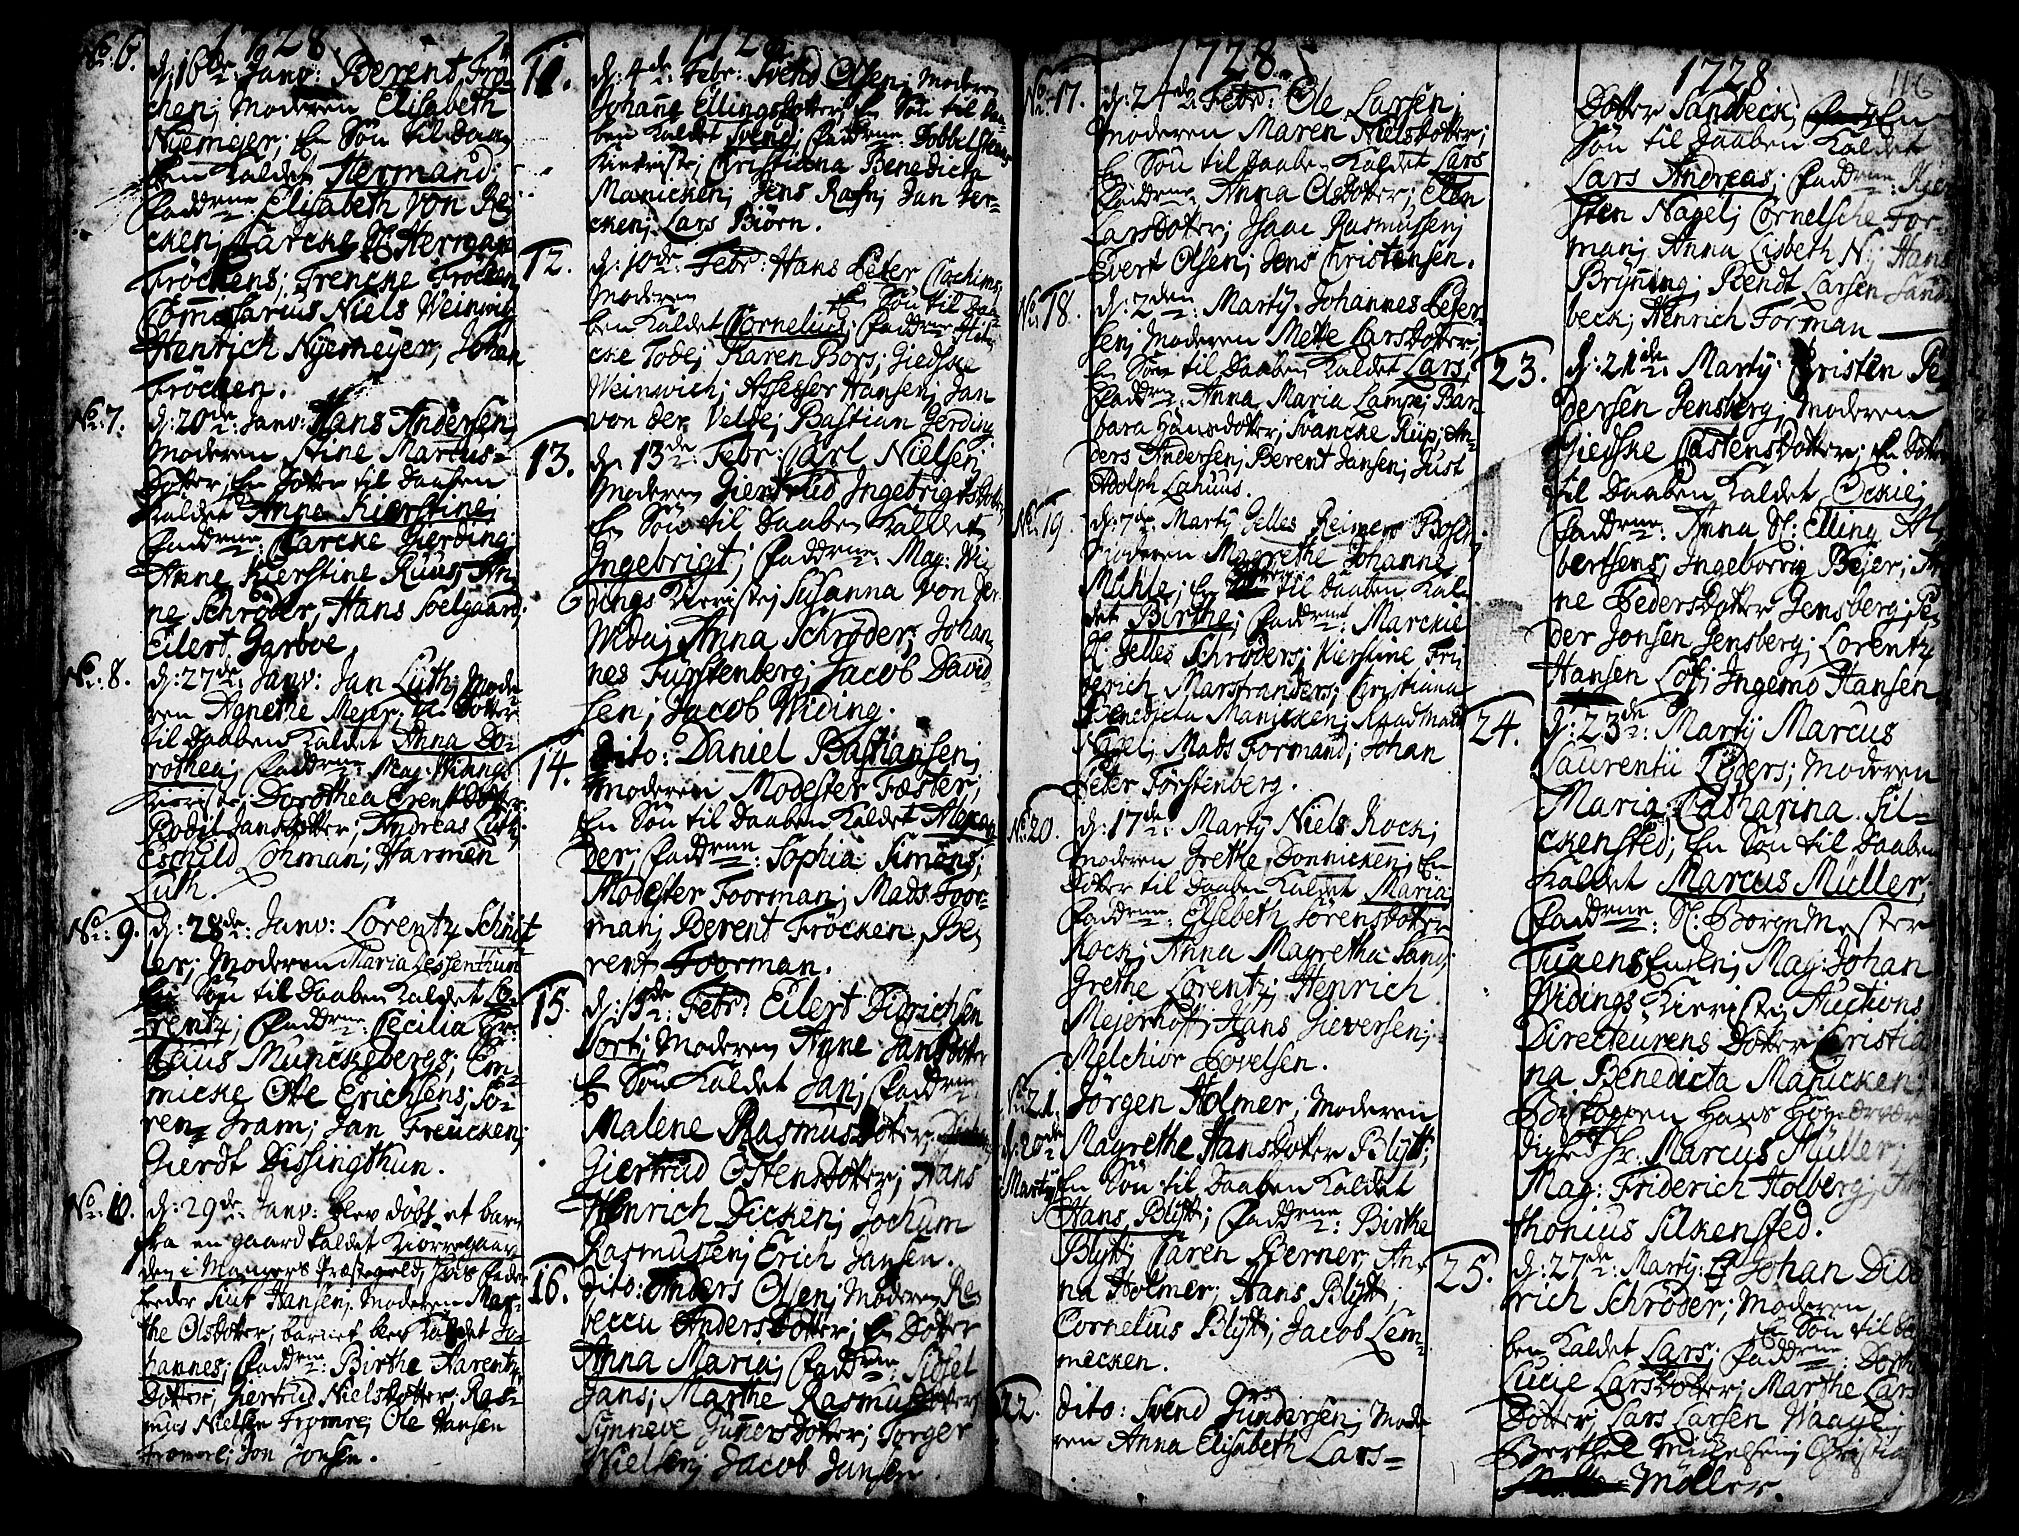 1728
No. 6. d: 16de Janv: Berent Frö-
chen; Moderen Elisabeth
Nyemejer; En Sön til Daa-
ben Kaldet Hermand;
Faddrne: Elisabeth von Re-
cken; Carcke Herman
Fröckens; Trencke Fröcken
Commissarius Niels Weinwig
Henrich Nyemeyer; Johan
Fröchen.
No. 7. d: 20de Janv: Hans Andersen;
Moderen Stine Marcus-
Dotter; En Dotter til Daaben
Kaldet Anne Kierstine;
Faddrne: Carcke Gierding;
Anne Kierstine Ruus; An-
ne Schröder; Hans Soelgaard;
Eilert Garboe.
No. 8. d: 27de Janv: Jan Lüth; Mode-
ren Agnethe Mejer; En Dotter
til Daaben Kaldet Anna Do-
rothea; Faddrne: Mag: Widings
Kieriste; Dorothea Erentsdotter
Bodil Jansdotter; Andreas Lüth;
Eschild Lohman; Harmen
Lüth.
No. 9. d: 28de Janv: Lorentz Schnit-
ler; Moderen Maria Dessenthun
En Sön til Daaben Kaldet Lo-
rentz; Faddrne: Cecilia
Munckebergs; Em-
micke Ole Erichsens; So-
ren Fram; Jan Freücken;
Gierdt Dissingthun.
No. 10. d: 29de Janv: blev döbt et barn
fra en gaard kaldet Kiorregaar-
den i Mangers Præstegield; Hvis Fader
heeder Siut Hansen; Moderen Mar-
the Olsdotter; barnet blev Kaldet Jo-
hannes; Faddrne: Birthe Harentz
Dotter; Giertrud Nielsdotter; Ras-
mus Nielsen Tromre; Ole Hansen
Jon Jonsen.
1728
11. d: 4de Febr: Svend Olsen; Moderen
Johanne Ellingsdotter; En Sön til Daa-
ben Kaldet Svend; Faddrne: Dobbelsteens
Kieriste; Christiana Benedicta
Manicken; Jens Rafn; Jan Ger-
cken; Lars Biörn.
12. d: 10de Febr: Hans Peter Jochims;
Moderen En Sön til Daa-
ben Kaldet Cornelius; Faddrne:
cke Tode; Karen Bors; Giedske
Weinwich; Assessor Hansen; Jan
von der Velde; Bastian Gerding
13. d: 13de Febr: Carl Nielsen;
Moderen Giertrud Ingebrigtsdotter;
En Sön til Daaben Kaldet
Ingebrigt; Faddrne: Mag: Wi-
dings Kieriste; Susanna von der
Wida; Anna Schröder; Johan-
nes Fürstenberg; Jacob David-
sen; Jacob Widing.
14. Dito: Daniel Bastiansen;
Moderen Modester Fæster;
En Sön til Daaben Kaldet Alexan-
der; Faddrne: Sophia Simens;
Modester Foorman; Mads Foor-
man; Berent Fröcken; Be-
rent Foorman.
15. d: 15de Febr: Eilert Didrichsen
Sort; Moderen Anne Jansdotter
En Sön Kaldet Jan; Faddrne:
Malene Rasmusdotter;
Giertrud Ostensdotter; Hans
Henrich Dicken; Jochum
Rasmussen; Erich Jansen.
16. Dito: Anders Olsen; Moderen Re-
becca Andersdotter; En Dotter
Anna Maria; Faddrne: Sidsel
Jans; Marthe Rasmusdotter
Sünneve Gunnersdotter; Torger
Nielsen; Jacob Jansen.
1728
No. 17. d: 24de Febr: Ole Larsen;
Moderen Maren Nielsdotter;
En Sön til Daaben Kaldet Lars
Faddrne: Anna Olsdotter; Ellen
Larsdotter; Isaac Rasmussen;
Evert Olsen; Jens Christensen.
No. 18. d: 2den Martÿ. Johannes Peter-
sen; Moderen Mette Larsdotter;
En Sön til Daaben Kaldet Lars;
Faddrne: Anna Maria Lampe; Bar-
bara Hansdotter; Svancke Riip; An-
ders Andersen; Berent Jansen; Just
Adolph Lahuus.
No. 19. d: 7de Martÿ Jelles Reimers Bosen;
Moderen Magrethe Johanne
Mühle; En til Daaben Kal-
det Birthe; Faddrne: Marckie
Sl. Jelles Schröders; Kierstine Fri-
derich Marstranders; Christiana
Benedicta Manicken; Raadmand
Nagel; Mads Formand; Johan
Peter Förstenberg.
No. 20. d: 17de Martÿ Niels Kock;
Moderen Grethe Donnicken; En
Dotter til Daaben Kaldet Maria
Faddrne: Elsebeth Sörensdotter
Kock; Anna Magretha Sand;
Grethe Lorentz; Henrich
Mejerhoff; Hans Gieversen;
Melchior Povelsen.
No. 21. Jörgen Holmer; Moderen
d: 20de Martÿ Magrethe Hansdotter Blÿtt;
En Sön til Daaben Kaldet
Hans Blÿtt; Faddrne: Birthe
Blÿtt; Caren Berner; An-
na Holmer; Hans Blÿtt;
Cornelius Blÿtt; Jacob Lem-
mecken.
22. Dito: Svend Gundersen; Mode-
ren Anna Elisabeth Lars-
1728 116
Dotter Sandbeck; En
Sön til Daaben Kaldet
Lars Andreas; Faddrne: Kjer-
sten Nagel; Cornelsche For-
man; Anna Lisbeth N.; Hans
Brÿnning; Bendt Larsen Sand-
beck; Henrich Forman
23. d: 21de Martÿ Christen Pe-
dersen Jensberg; Moderen
Giedske Castensdotter; En Dotter
til Daaben Kaldet Ockie;
Faddrne: Anna Sl: Elling Al-
bertsens; Ingeborrig Bejer; An-
ne Pedersdotter Jensberg; Pe-
der Jonsen Jensberg; Lorentz
Hansen Loss; Ingemo Hansen
24. d: 23de Martÿ Marcus
Laurentii Peders; Moderen
Maria Catharina Sil-
ckensted; En Sön til Daaben
Kaldet Marcus Müller;
Faddrne: Sl: BorgeMester
Tuxens Encken; Mag: Johan
Widings Kieriste; Auctions
Directeurens Dotter Cristia-
na Benedicta Manicken;
Biskoppen Hans Höyærvær-
dighed Hr. Marcus Müller;
Mag: Friderich Holberg; An-
thonius Silkensted.
25. d: 27de Martÿ: Johan Did-
rich Schröder; Moderen
En Sön til Daa-
ben Kaldet Lars; Faddrne: Dorthe
Lucie Larsdotter; Marthe Lars
Dotter; Lars Larsen Waage;
Berthel Mickelsen; Christian
Möller.